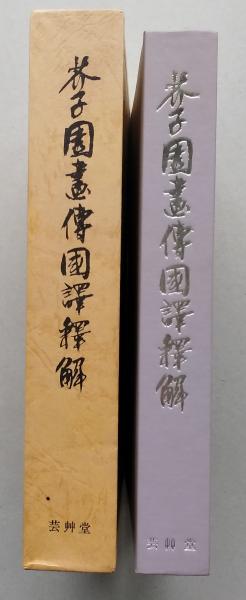 芥子園畫傳國譯釋解
芸艸堂
芥子園畫傳國譯釋解
芸艸堂